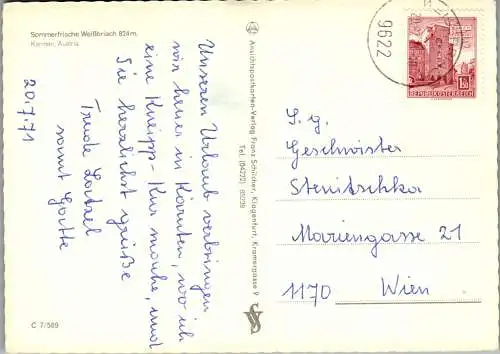 Sommerfrische Weißbriach 824 m.
Kärnten, Austria
Unseren Urlaub verbringen
wir heuer in Kärnten, wo ich
eine Kneipp-Kur mache, und
Sie herzlichst grüße
Trude
samt Gatte
20.7.71
C 7/569
Ansichtspostkarten-Verlag Franz Schilcher, Klagenfurt, Kramergasse 9
Tel. (04222)
9622
REPUBLIK ÖSTERREICH
S. g.
Geschwister
Stenitschka
Mariengasse 21
1170 Wien